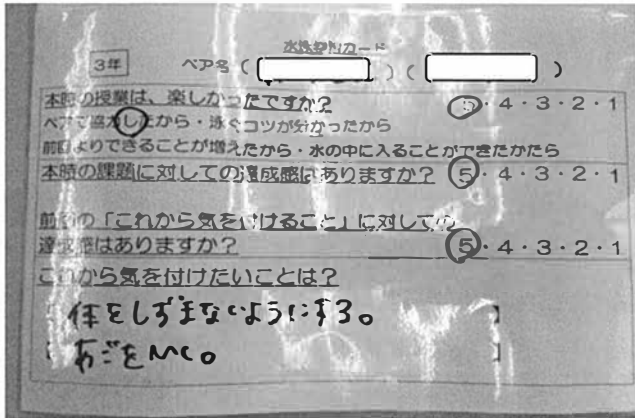 水泳学習カード
3年 ペア名 ( ) ( )
本時の授業は、楽しかったですか? 5・4・3・2・1
ペアで協力したから・泳ぐコツが分かったから
前回よりできることが増えたから・水の中に入ることができたかたら
本時の課題に対しての達成感はありますか? 5・4・3・2・1
前回の「これから気を付けること」に対しての
達成感はありますか? 5・4・3・2・1
これから気を付けたいことは?
体をしずまないようにする。
あごを